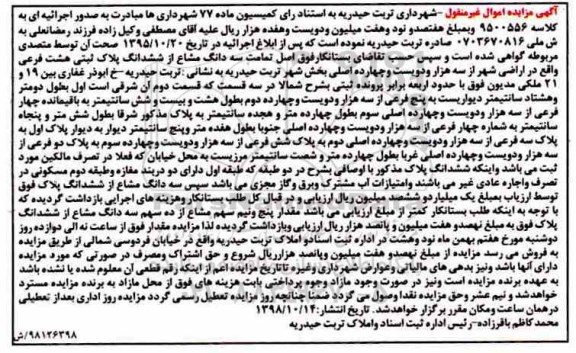 آگهی مزایده اموال غیرمنقول -شهرداری تربت حیدریه به استناد رای کمیسیون ماده ۷۷ شهرداری ها مبادرت به صدور اجرائیه ای به
کلاسه ۹۵۰۰۵۵۶ وبمبلغ هفتصدو نود وهفت میلیون ودویست وهفده هزار ریال علیه آقای مصطفی وکیل زاده فرزند رمضانعلی به
ش ملی ۰۷۰۳۶۷۰۸۱۶ صادره تربت حیدریه نموده است که پس از ابلاغ اجرائیه در تاریخ ۱۳۹۵/۱۰/۲۰ صحت آن توسط متصدی
مربوطه گواهی شده است و سپس طبق تقاضای بستانکارفوق اصل تمامت سه دانگ مشاع از ششدانگ پلاک ثبتی هشت فرعی
واقع در اراضی شهر از سه هزار ودویست وچهارده اصلی بخش شهر تربت حیدریه به نشانی :تربت حیدریه –خ ابوذر غفاری بین ۱۹ و
۲۱ ملکی مدیون فوق با حدود اربعه برابر پرونده ثبتی بشرح شمالا در سه قسمت که قسمت دوم آن شرقی است اول بطول دومتر
وهشتاد سانتیمتر دیواریست به پنج فرعی از سه هزار ودویست وچهارده دوم بطول هشت و بیست وشش سانتیمتر به باقیمانده چهار
فرعی از سه هزار ودویست وچهارده اصلی سوم بطول چهارده متر و هجده سانتیمتر به پلاک مذکور شرقا بطول شش متر و پنجاه
سانتیمتر به شماره چهار فرعی از سه هزار ودویست وچهارده اصلی جنوبا بطول هفده متر وپنج سانتیمتر دیوار به دیوار پلاک اول به
پلاک سه فرعی از سه هزار ودویست وچهارده اصلی دوم به پلاک شش فرعی از سه هزار ودویست وچهارده سوم به پلاک دو فرعی از
سه هزار ودویست وچهارده اصلی غربا بطول چهارده متر و شصت سانتیمتر مرزیست به محل خیابان که فعلا در تصرف مالکین مورد
ثبت می باشد واینکه ششدانگ پلاک مذکور با اوصافی بشرح در دو طبقه که طبقه اول دارای دو دربند مغازه وطبقه دوم مسکونی در
تصرف واجاره عادی غیر می باشند وامتیازات آب مشترک وبرق وگاز مجزی می باشد سپس سه دانگ مشاع از ششدانگ پلاک فوق
توسط ارزیاب بمبلغ یک میلیارد وششصد میلیون ریال ارزیابی ودر قبال کل طلب بستانکار وهزینه های اجرایی بازداشت گردیده که
با توجه به اینکه طلب بستانکار کمتر از مبلغ ارزیابی می باشد مقدار پنج ونیم سهم مشاع از ده سهم سه دانگ مشاع از ششدانگ
پلاک فوق به مبلغ نهصدو هفت میلیون و پانصد هزار ریال ارزیابی وبازداشت گردیده لذا مزایده مقدار فوق از ساعت نه الی دوازده روز
دوشنبه مورخ هفتم بهمن ماه نود وهشت در اداره ثبت اسنادو املاک تربت حیدریه واقع در خیابان فردوسی شمالی از طریق مزایده
به فروش می رسد مزایده از مبلغ نهصدو هفت میلیون وپانصد هزارریال شروع و حق اشتراک ومصرف در صورتی که مورد مزایده
دارای آنها باشد ونیز بدهی های مالیاتی وعوارض شهرداری وغیره تاتاریخ مزایده اعم از اینکه رقم قطعی آن معلوم شده یا نشده باشد
به عهده برنده مزایده است ونیز در صورت وجود مازاد،وجوه پرداختی بابت هزینه های فوق از محل مازاد به برنده مزایده مسترد
خواهدشد و نیم عشر وحق مزایده نقدا وصول می گردد ضمنا چنانچه روز مزایده تعطیل رسمی گردد مزایده روز اداری بعداز تعطیلی
درهمان ساعت ومکان مقرر برگزار خواهدشد. تاریخ انتشار:۱۳۹۸/۱۰/۱۴
محمد کاظم باقرزاده–رئیس اداره ثبت اسناد واملاک تربت حیدریه
۹۸۱۲۶۳۹۸/ش